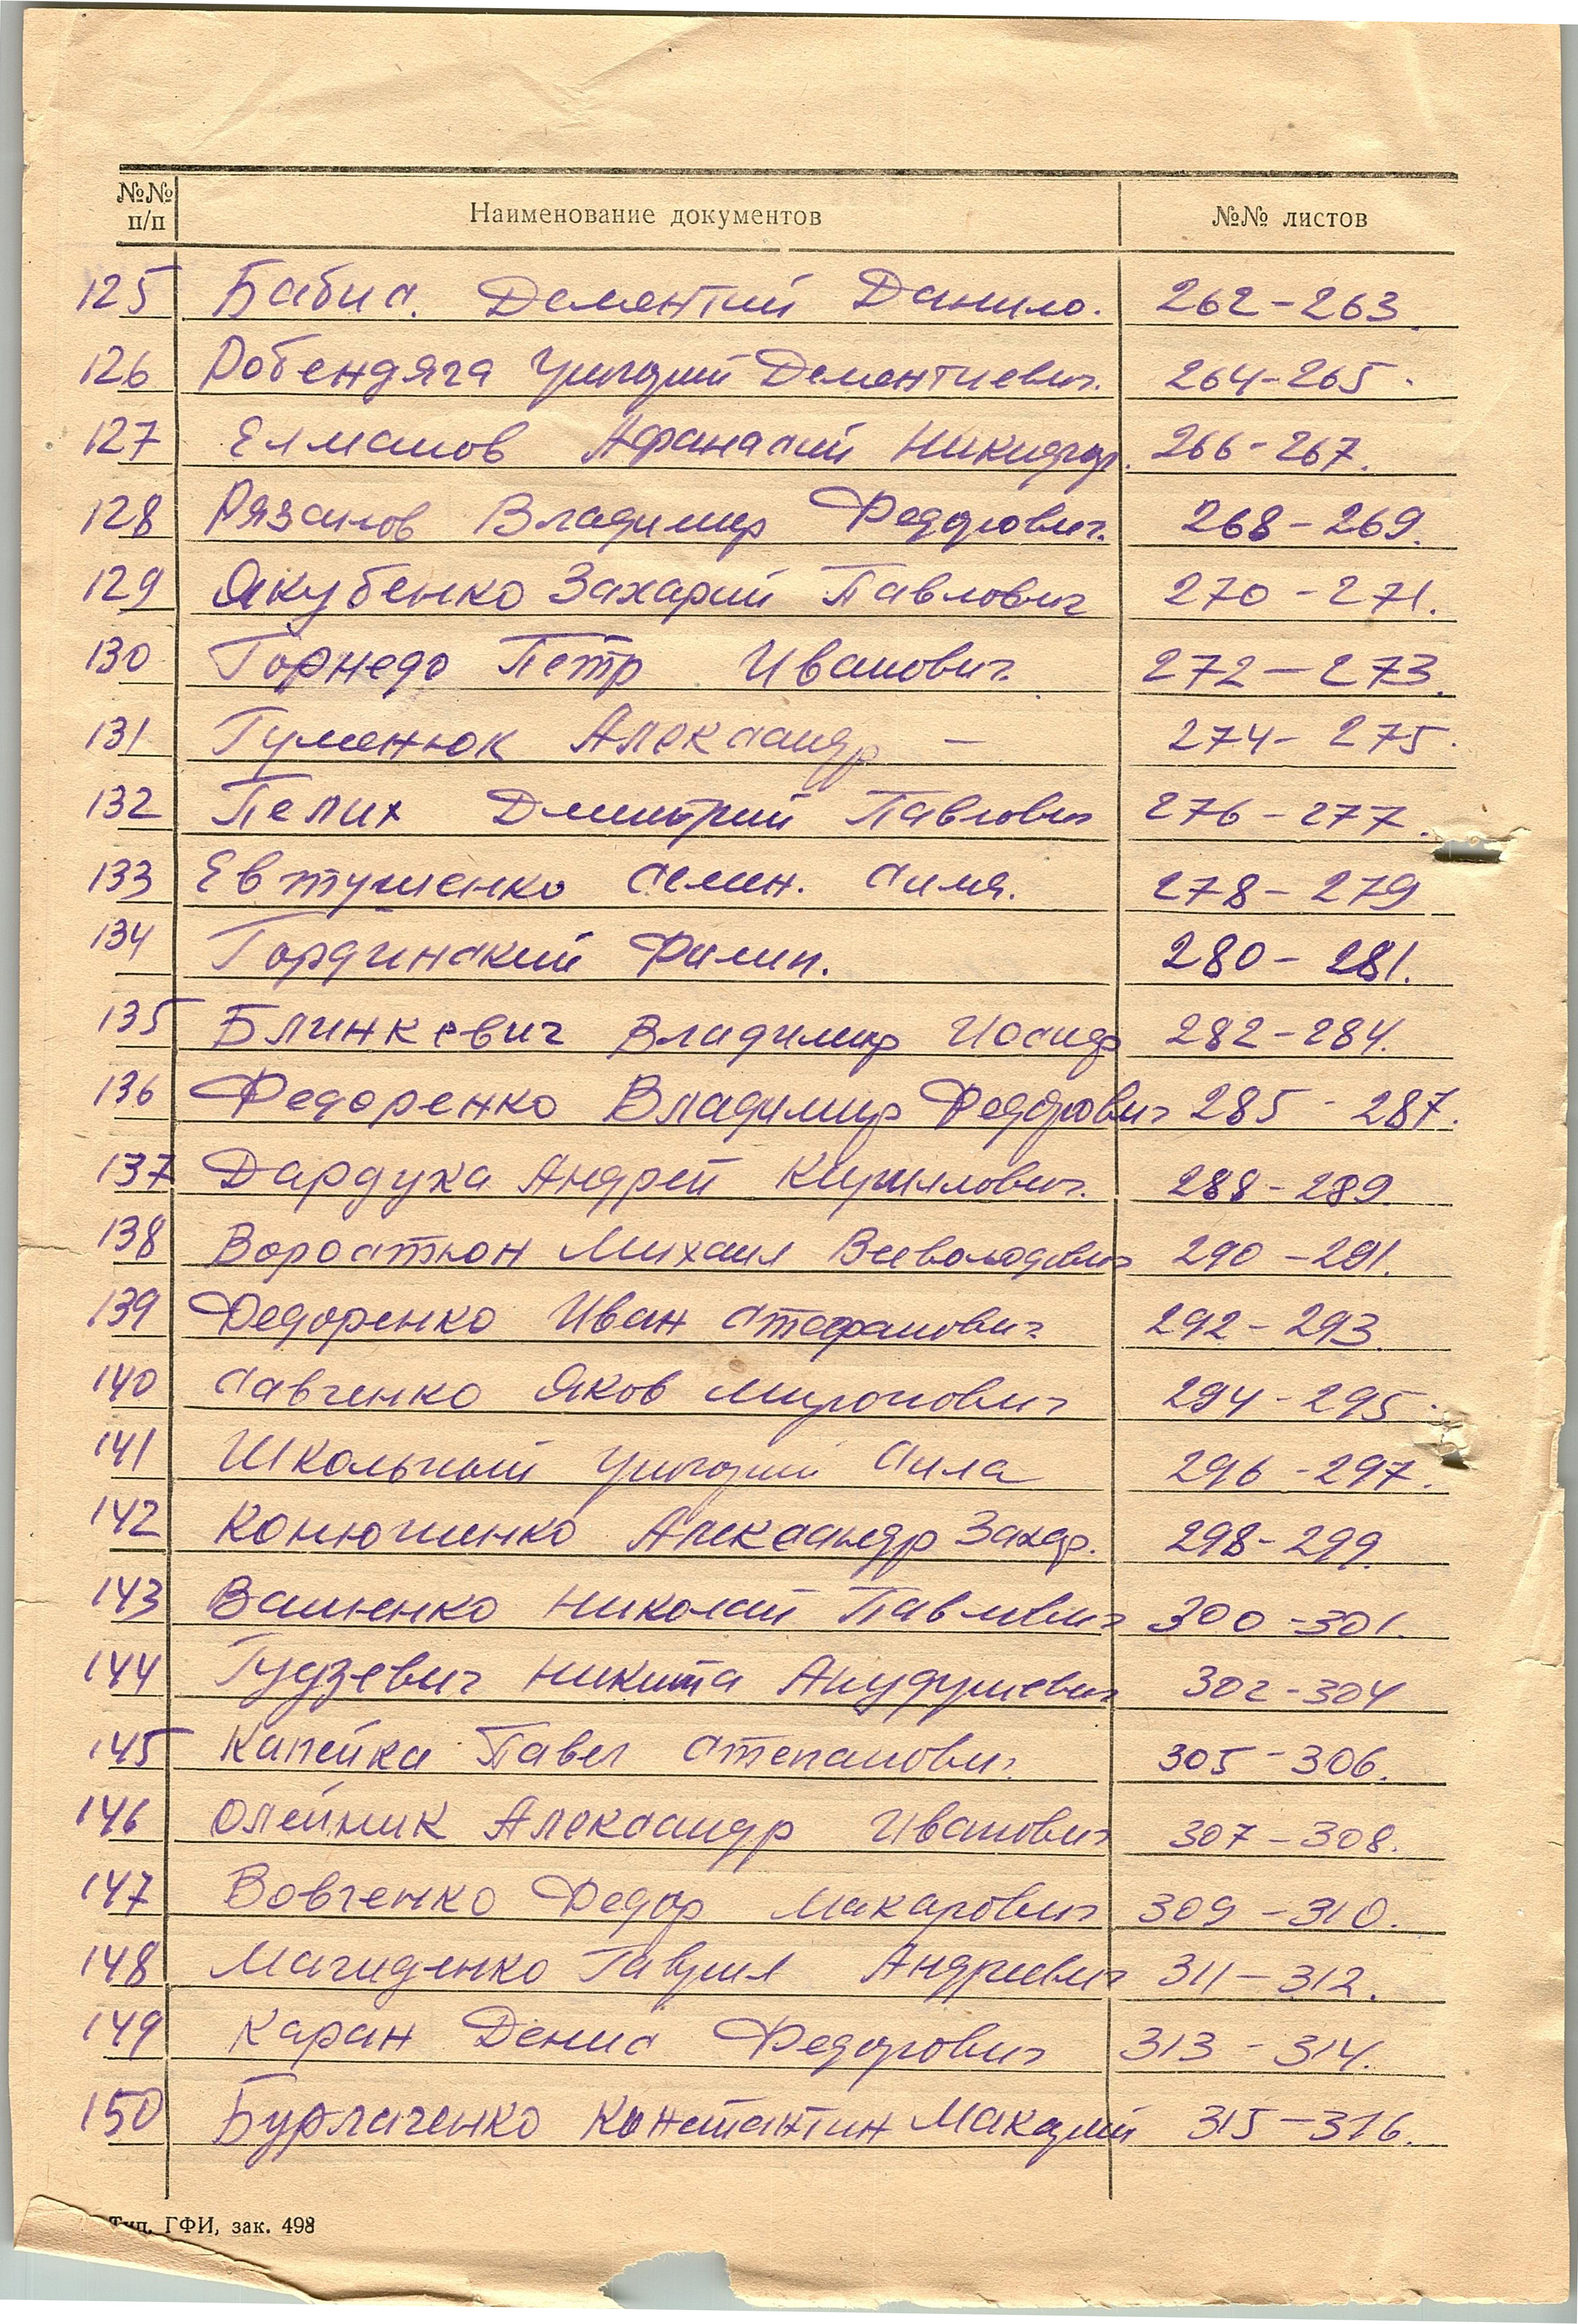 №№ п/п Наименование документов №№ листов
125 Бабис. Дементий Данило. 262-263
126 Робендяга Григорий Дементиевич. 264-265.
127 Елманов Афанасий Никифор. 266-267.
128 Рязанов Владимир Федорович. 268-269.
129 Якубенко Захарий Павлович 270-271.
130 Торнедо Петр Иванович 272-273.
131 Гуменюк Александр — 274-275.
132 Пелих Дмитрий Павлович 276-277.
133 Евтушенко Семен. Силя. 278-279
134 Гординский Филип. 280-281.
135 Блинкевич Владимир Иосиф 282-284.
136 Федоренко Владимир Федорович 285-287.
137 Дардуха Андрей Кирилович. 288-289.
138 Воросткон Михаил Всеволодович 290-291.
139 Федоренко Иван Стефанович 292-293.
140 Савченко Яков Миронович 294-295.
141 Школьный Григорий Сила 296-297.
142 Конюшенко Александр Захар. 298-299.
143 Ващенко Николай Павлович 300-301.
144 Гудзевич Никита 302-304
145 Капейка Павел Степанович. 305-306.
146 Олейник Александр Иванович 307-308.
147 Вовченко Федор Макарович 309-310.
148 Магиденко Гаврил Андреевич 311-312.
149 Каран Денис Федорович 313-314.
150 Бурлаченко Константин Макарий 315-316.
Тип. ГФИ, зак. 498